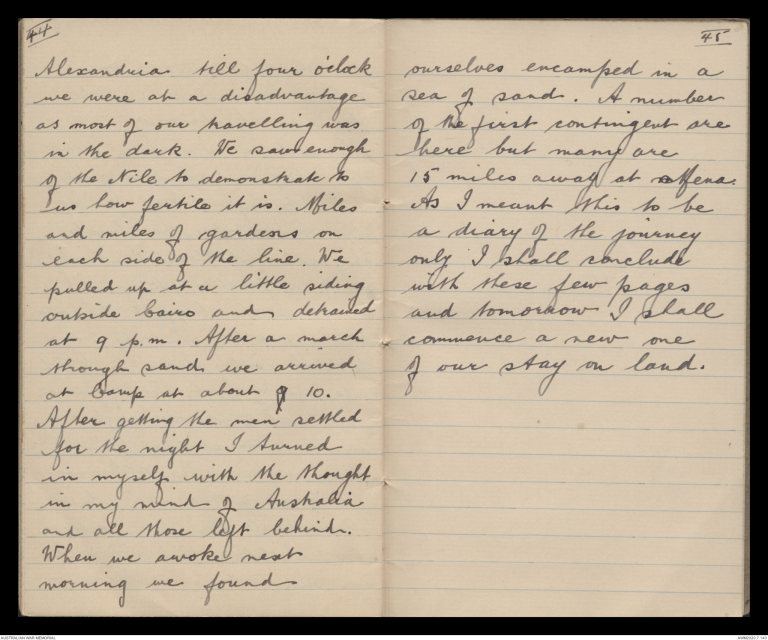 44
Alexandria till four o'clock
we were at a disadvantage
as most of our travelling was
in the dark. We saw enough
of the Nile to demonstrate to
us how fertile it is. Miles
and miles of gardens on
each side of the line. We
pulled up at a little siding
outside Cairo and detrained
at 9 p.m. After a march
through sand we arrived
at Camp at about 10.
After getting the men settled
for the night I turned
in myself with the thought
in my mind of Australia
and all those left behind.
When we awoke next
morning we found
45
ourselves encamped in a
sea of sand. A number
of the first contingent are
here but many are
15 miles away at Mena.
As I meant this to be
a diary of the journey
only I shall conclude
with these few pages
and tomorrow I shall
commence a new one
of our stay on land.
AUSTRALIAN WAR MEMORIAL